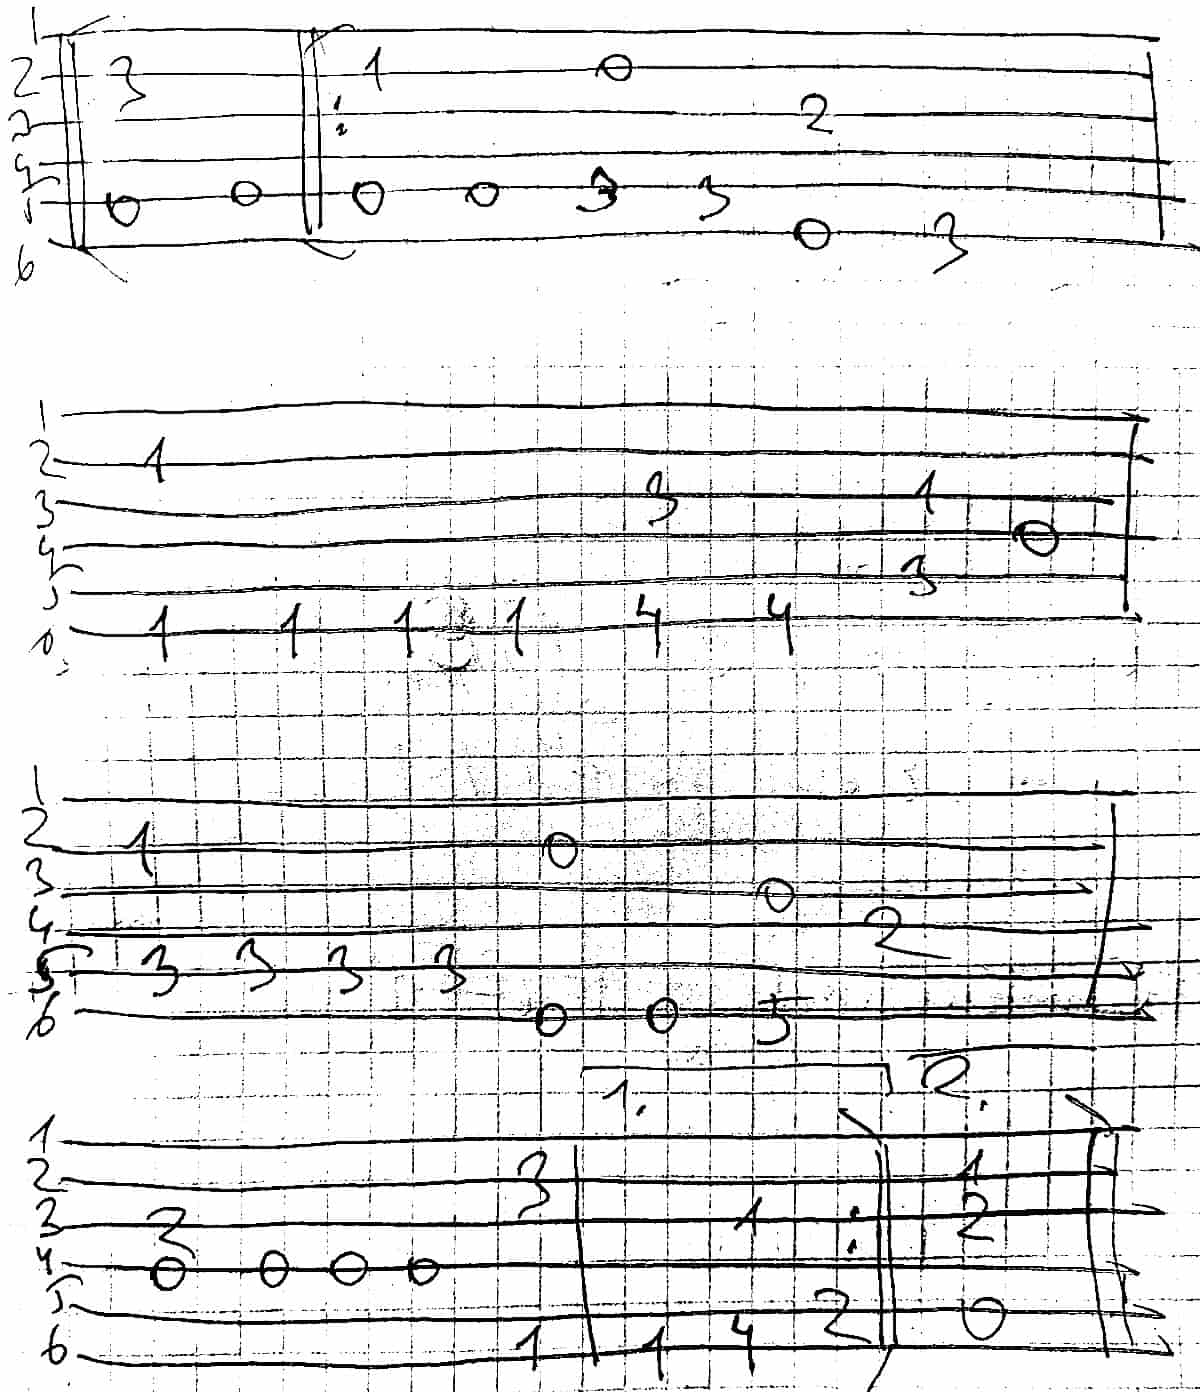 1
2 3 1 0
3 : 2
4
5 0 0 0 0 3 3
6 0 3
1
2 1
3 3 1
4 0
5 3
6 1 1 1 1 4 4
1
2 1 0
3 0
4 2
5 3 3 3 3
6 0 0 5
1. 2.
1
2 3 1
3 2 1 : 2
4 0 0 0 0
5 2 0
6 1 1 4